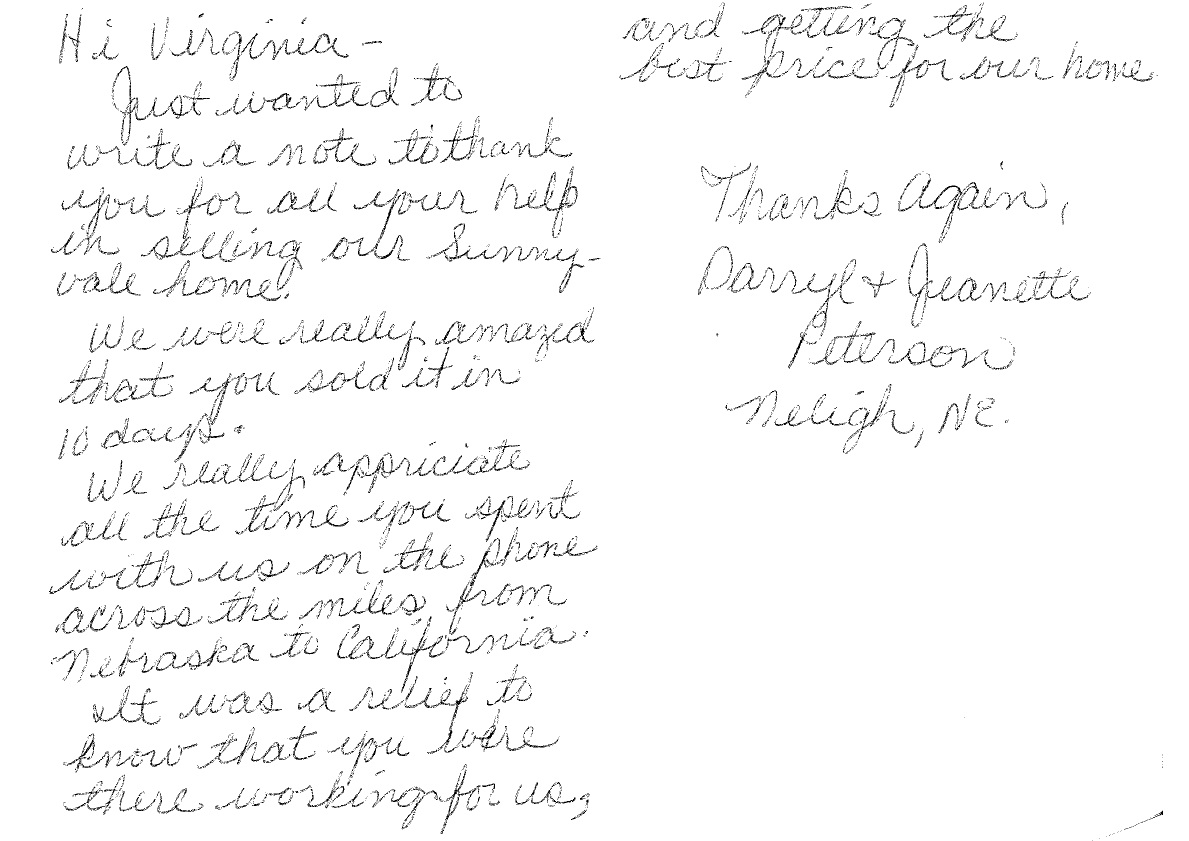 Hi Virginia –
Just wanted to
write a note to thank
you for all your help
in selling our Sunny-
vale home.
We were really amazed
that you sold it in
10 days.
We really appriciate
all the time you spent
with us on the phone
across the miles from
Nebraska to California.
It was a relief to
know that you were
there working for us,
and getting the
best price for our home
Thanks Again,
Darryl + Jeanette
Peterson
Neligh, NE.